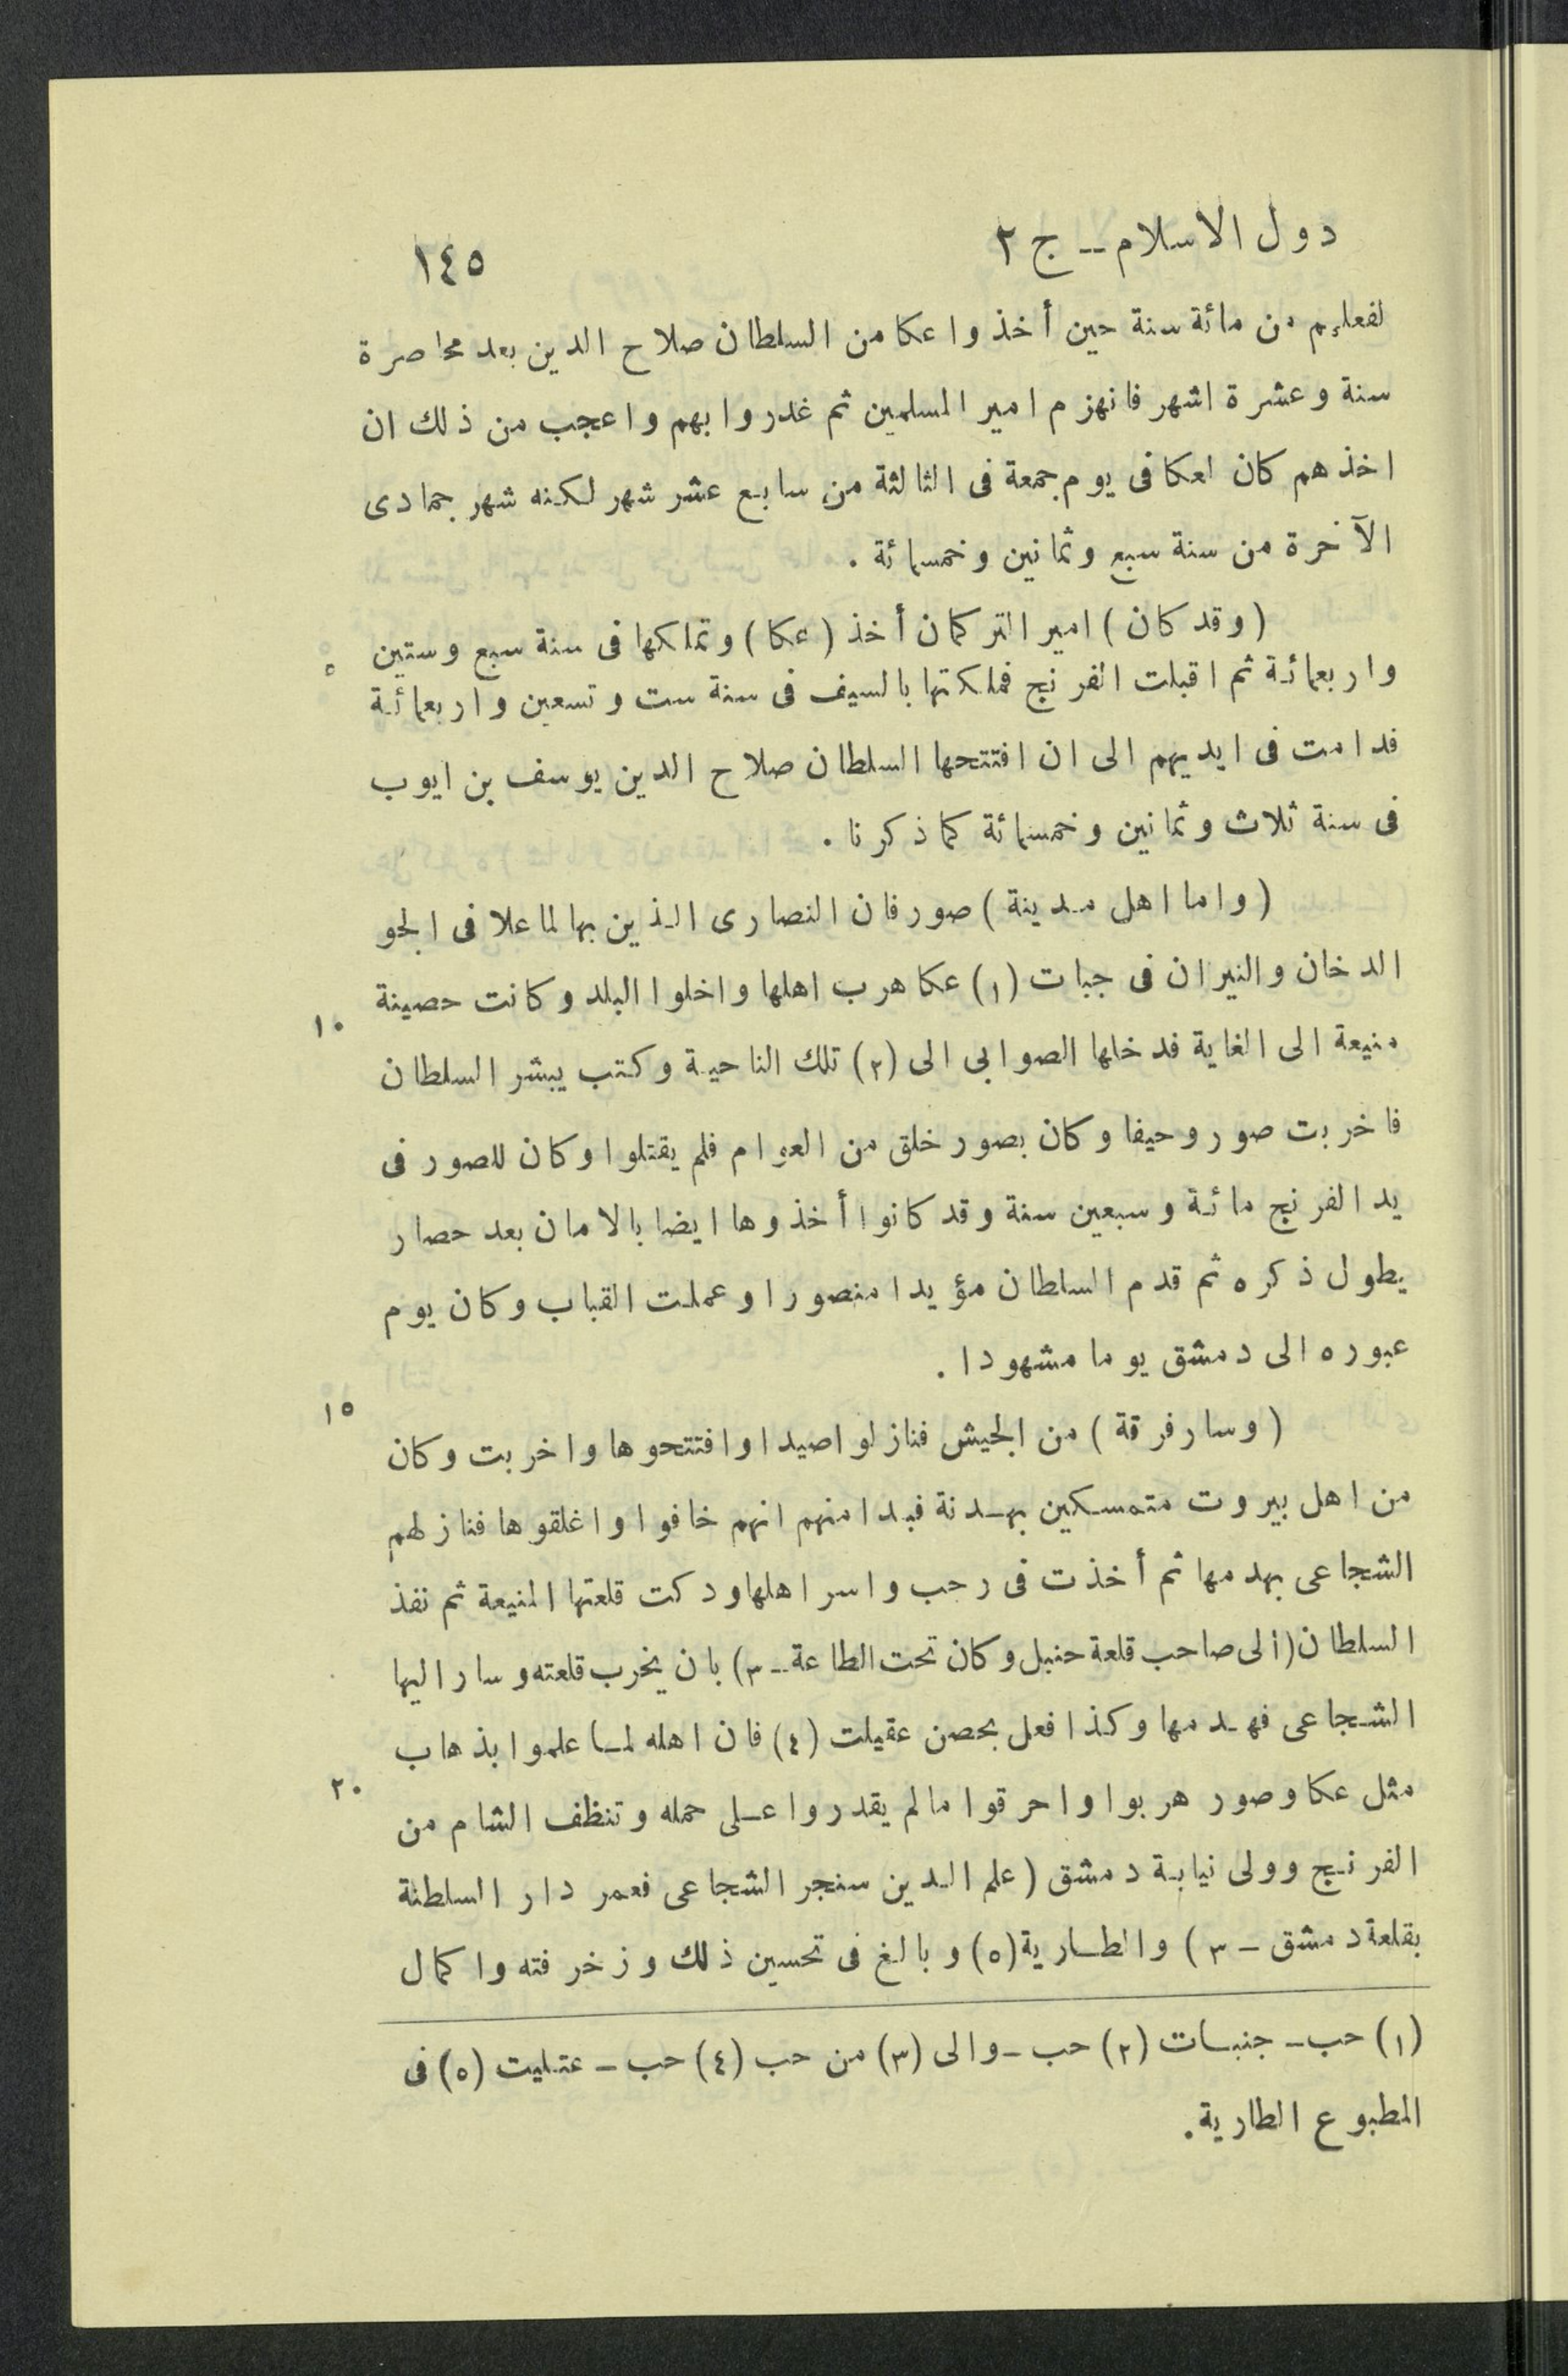 دول الاسلام -- ج ٢
١٤٥
لفعلهم من مائة سنة حين أخذوا عكا من السلطان صلاح الدين بعد محاصرة
سنة وعشرة اشهر فانهزم امير المسلمين ثم غدروا بهم واعجب من ذلك ان
اخذهم كان لعكا فى يوم جمعة فى الثالثة من سابع عشر شهر لكنه شهر جمادى
الآخرة من سنة سبع وثمانين وخمسمائة .
(وقد كان) امير التركمان أخذ (عكا) وتملكها فى سنة سبع وستين
٥
واربعمائة ثم اقبلت الفرنج فملكتها بالسيف فى سنة ست وتسعين واربعمائة
فدامت فى ايديهم الى ان افتتحها السلطان صلاح الدين يوسف بن ايوب
فى سنة ثلاث وثمانين وخمسمائة كما ذكرنا .
(واما اهل مدينة) صور فان النصارى الذين بها لما علا فى الجو
الدخان والنيران فى جبات (١) عكا هرب اهلها واخلوا البلد وكانت حصينة
١٠
منيعة الى الغاية فدخلها الصوابى الى (٢) تلك الناحية وكتب يبشر السلطان
فاخربت صور وحيفا وكان بصور خلق من العوام فلم يقتلوا وكان للصور فى
يد الفرنج مائة وسبعين سنة وقد كانوا أخذوها ايضا بالامان بعد حصار
يطول ذكره ثم قدم السلطان مؤيدا منصورا وعملت القباب وكان يوم
عبوره الى دمشق يوما مشهودا .
١٥
(وسار فرقة) من الجيش فنازلوا صيدا وافتتحوها واخربت وكان
من اهل بيروت متمسكين بهدنة فبدا منهم انهم خافوا واغلقوها فنازلهم
الشجاعى بهدمها ثم أخذت فى رحب واسر اهلها ودكت قلعتها المنيعة ثم نفذ
السلطان (الى صاحب قلعة حنبل وكان تحت الطاعة -- ٣) بان يخرب قلعته وسار اليها
الشجاعى فهدمها وكذا فعل بحصن عقيلت (٤) فان اهله لما علموا بذهاب
٢٠
مثل عكا وصور هربوا واحرقوا ما لم يقدروا على حمله وتنظف الشام من
الفرنج وولى نيابة دمشق (علم الدين سنجر الشجاعى فعمر دار السلطنة
بقلعة دمشق - ٣) والطارية (٥) وبالغ فى تحسين ذلك وزخرفته واكمال
(١) حب - جنبات (٢) حب - والى (٣) من حب (٤) حب - عتليت (٥) فى
المطبوع الطارية.